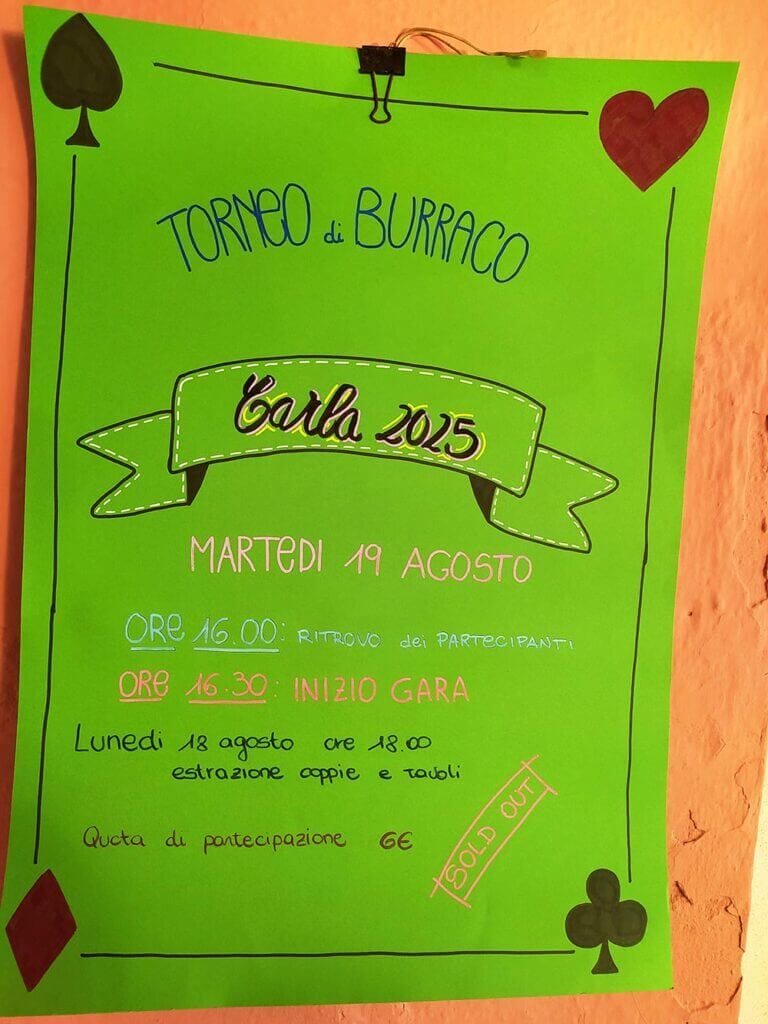 TORNEO di BURRACO
Carla 2025
MARTEDI 19 AGOSTO
ORE 16.00: RITROVO dei PARTECIPANTI
ORE 16.30: INIZIO GARA
Lunedi 18 agosto ore 18.00
estrazione coppie e tavoli
Quota di partecipazione 6€
SOLD OUT